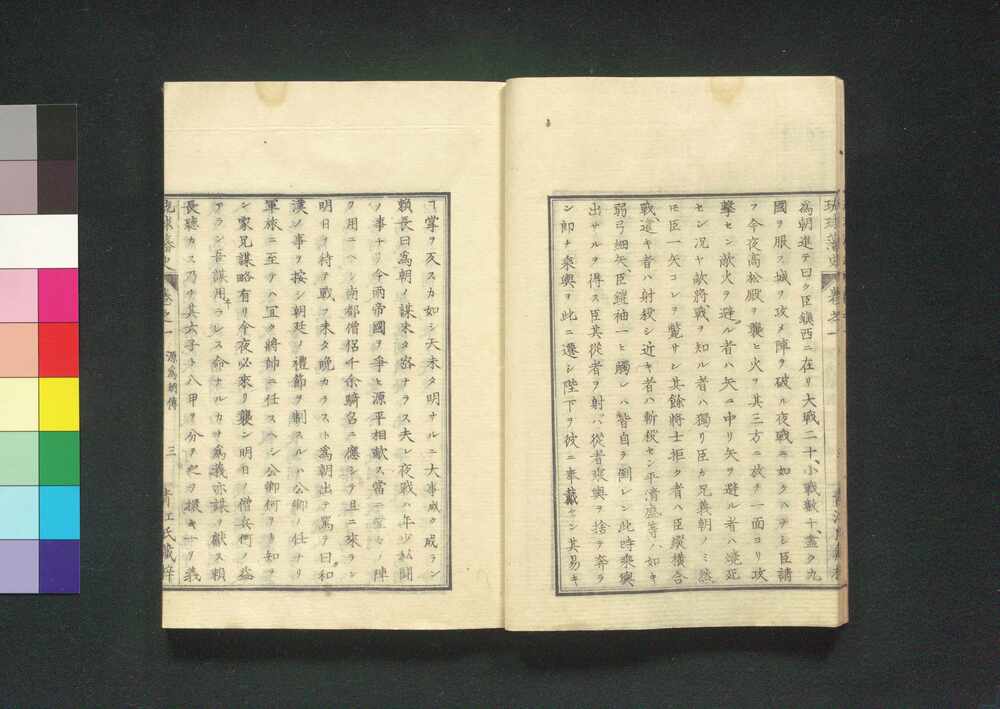 琉球藩史 巻之一
爲朝進テ曰ク臣鎭西ニ在リ大戰二十、小戰數十、盡ク九
國ヲ服ス城ヲ攻メ陣ヲ破ル夜戰ニ如クハナシ臣請
フ今夜高松殿ヲ襲ヒ火ヲ其三方ニ放チ一面ヨリ攻
撃セン敵火ヲ避ル者ハ矢ニ中リ矢ヲ避ル者ハ燒死
セン况ヤ敵將戰ヲ知ル者ハ獨リ臣カ兄義朝ノミ然
モ臣一矢コレヲ斃サン其餘將士拒ク者ハ臣縱横合
戰、遠キ者ハ射殺シ近キ者ハ斬殺セン平清盛等ハ如キ
弱弓細矢、臣鎧袖一ヒ觸レハ皆自ラ倒レン此時乘輿
出サルヲ得ス臣其從者ヲ射ハ從者乘輿ヲ捨テ奔ラ
ン即チ乘輿ヲ此ニ遷シ陛下ヲ彼ニ奉戴セン其易キ
ヿ掌ヲ反スカ如シ天未タ明サルニ大事咸ク成ラン
頼長曰爲朝ノ謀末タ畧ナラス夫レ夜戰ハ年少私鬪
ノ事ナリ今兩帝國ヲ爭ヒ源平相敵ス當ニ堂々ノ陣
ヲ用ユヘシ南都僧侶千余騎召ニ應シテ且ニ來ラン
明日ヲ待テ戰フ未タ晩カラスト爲朝出テ罵テ曰和
漢ノ事ヲ按シ朝廷ノ禮節ヲ制スルハ公卿ノ任ナリ
軍旅ニ至テハ冝ク將帥ニ任スヘシ公卿何ヲカ知ラ
ン家兄謀略有リ今夜必來リ襲ン明日ノ僧兵何ノ益
アラン吾謀用ヰラレス命ナルカナ爲義亦謀ヲ獻ス頼
長聽カス乃チ其六子ト八甲ヲ分チ之ヲ擐キ一ヲ義
琉球藩史 巻之一 源爲朝傳 三 青江氏藏梓